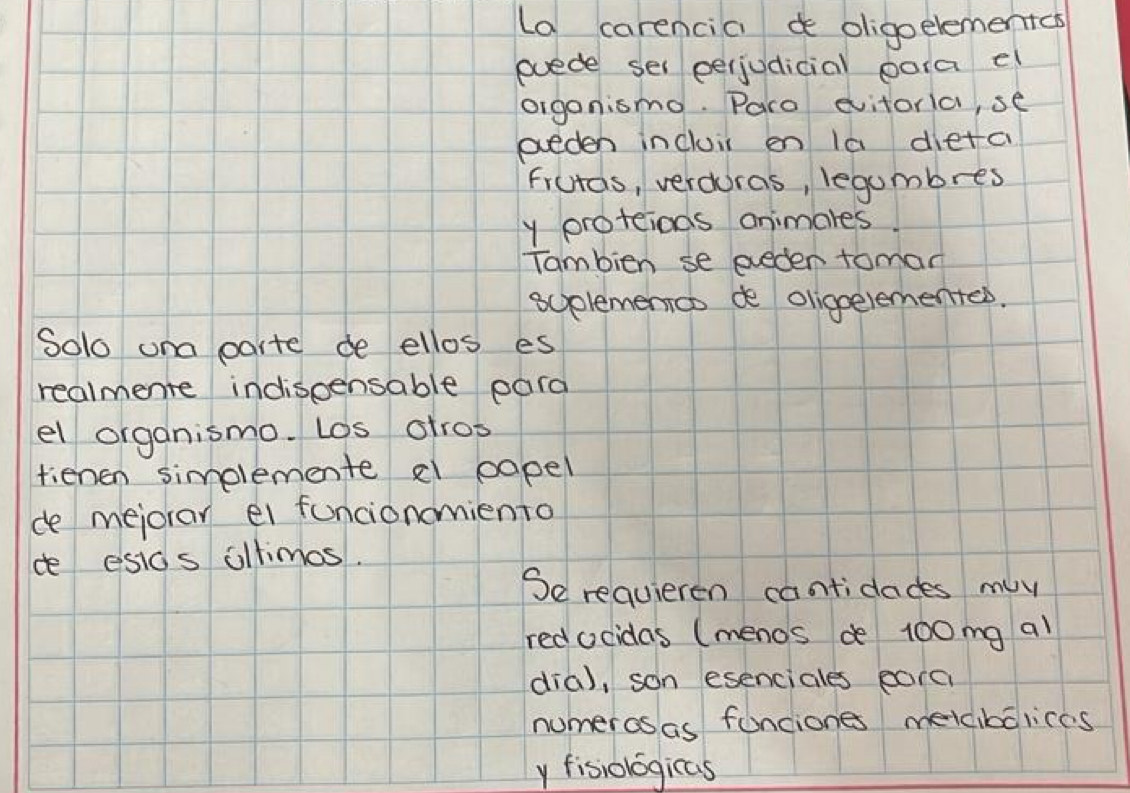 La carencia de oligoelementos
puede ser perjudicial para el
organismo. Para evitarla, se
pueden incluir en la dieta
frutas, verduras, legumbres
y proteinas animales.
Tambien se pueden tomar
suplementos de oligoelementos.
Solo una parte de ellos es
realmente indispensable para
el organismo. Los otros
tienen simplemente el papel
de mejorar el funcionamiento
de estos últimos.
Se requieren cantidades muy
reducidas (menos de 100 mg al
día), son esenciales para
numerosas funciones metabólicas
y fisiológicas